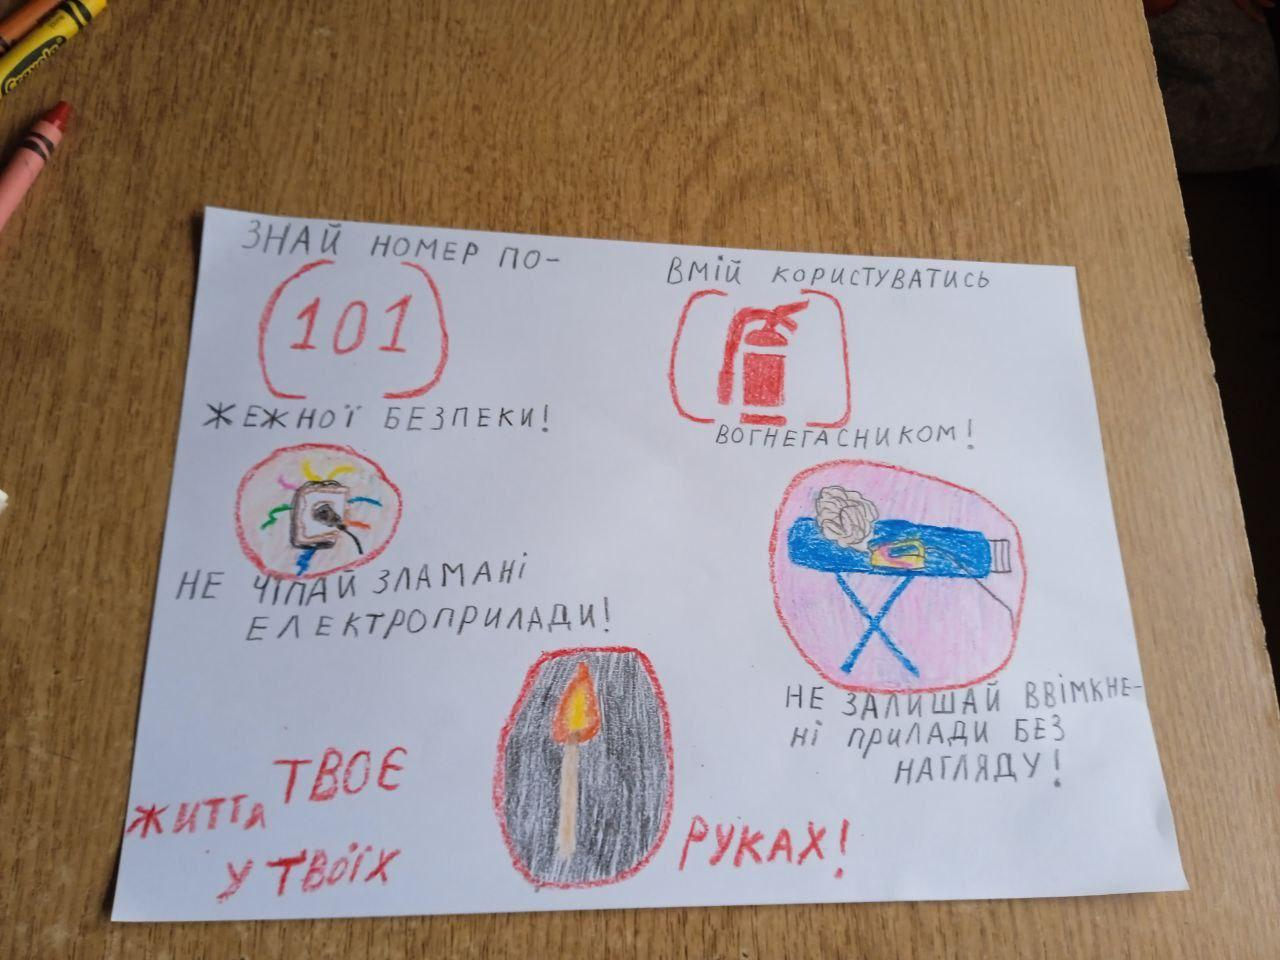 Crayola
ЗНАЙ НОМЕР ПО-
101
ЖЕЖНОЇ БЕЗПЕКИ!
ВМІЙ КОРИСТУВАТИСЬ
ВОГНЕГАСНИКОМ!
НЕ ЧІПАЙ ЗЛАМАНІ
ЕЛЕКТРОПРИЛАДИ!
НЕ ЗАЛИШАЙ ВВІМКНЕ-
НІ ПРИЛАДИ БЕЗ
НАГЛЯДУ!
ТВОЄ
ЖИТТЯ
У ТВОЇХ
РУКАХ!